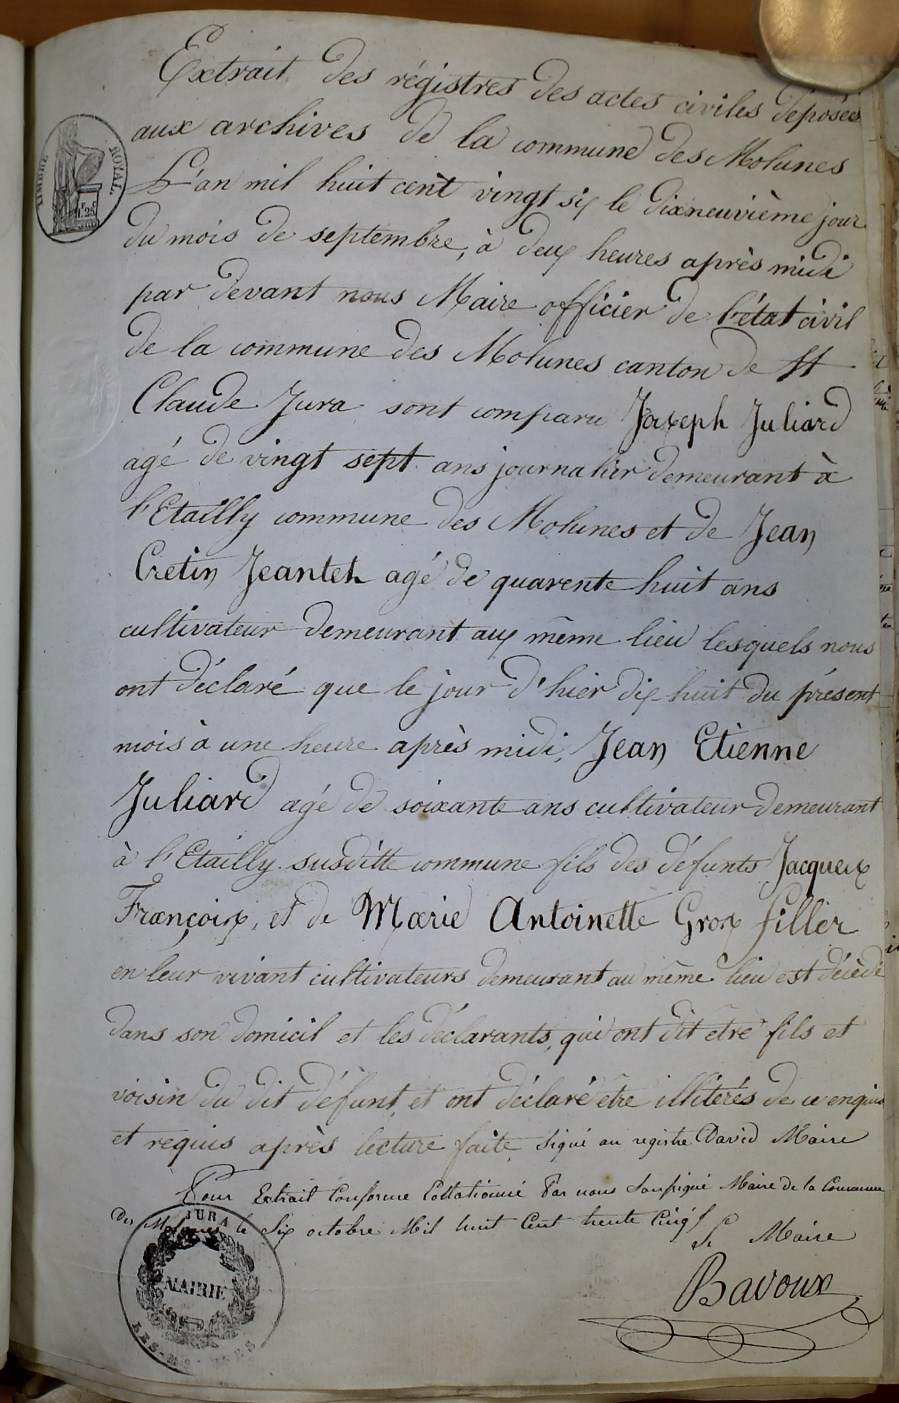 Extrait des régistres des actes civiles déposés
aux archives de la commune des Molunes
TIMBRE ROYAL.
L'an mil huit cent vingt six le dixneuvième jour
du mois de septembre, à deux heures après midi
par devant nous Maire officier de l'état civil
de la commune des Molunes canton de St
Claude Jura sont comparu Joseph Juliard
agé de vingt sept ans journalier demeurant à
l'Etailly commune des Molunes et de Jean
Cretin Jeantet agé de quarente huit ans
cultivateur demeurant aux même lieu lesquels nous
ont déclaré que le jour d'hier dix huit du présent
mois à une heure après midi, Jean Etienne
Juliard agé de soixante ans cultivateur demeurant
à l'Etailly susditte commune fils des défunts Jacques
François, et de Marie Antoinette Gros fillier
en leur vivant cultivateurs demeurant au même lieu est décédé
dans son domicil et les déclarants, qui ont dit être fils et
voisin du dit défunt, et ont déclaré être illitérés de ce enquis
et requis après lecture faite, signé au registre David Maire
Pour Extrait Conforme Collationné Par nous Soussigné Maire de la Commune
Des Molunes le Six octobre Mil huit Cent trente Cinq
Le Maire
Bavoux
JURA
MAIRIE
LES-MOLUNES